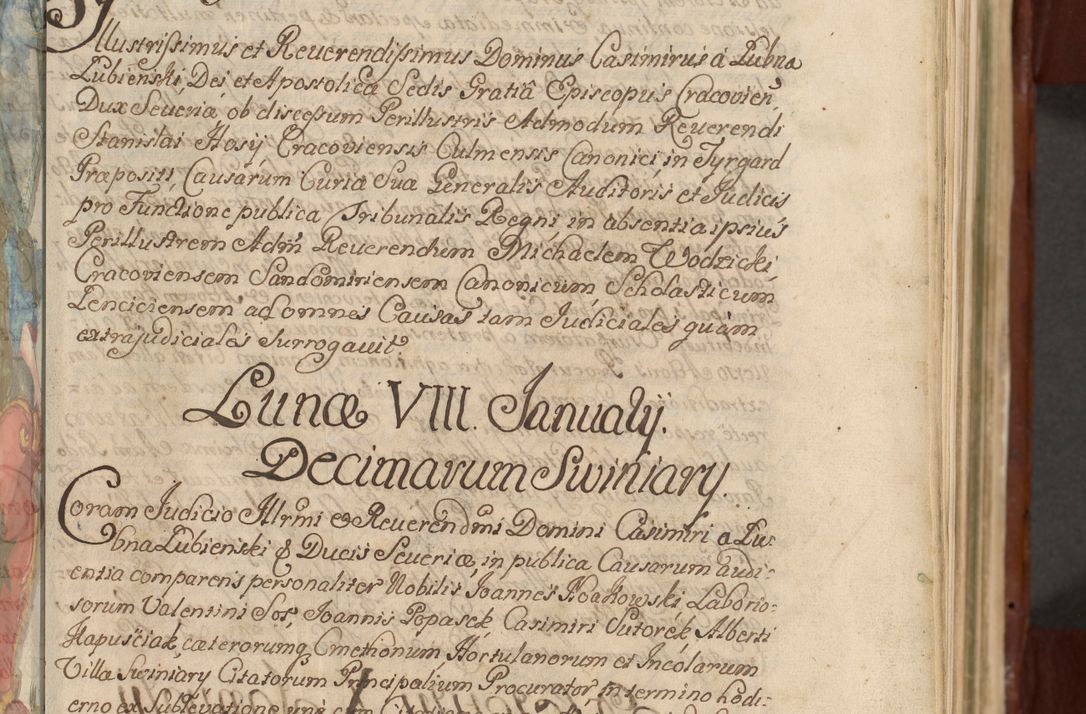 Illustrissimus et Reuerendissimus Dominus Casimirus á Łubna
Łubieński, Dei et Apostolicæ Sedis Gratiâ Episcopus Cracovien
Dux Seueriæ ob discessum Perillustris Admodum Reuerendi
Stanislai Hosÿ Cracoviensis Culmensis Canonici, in Tyrgard
Præpositi, Causarum Curiæ Suæ Generalis Auditoris et Judicis
pro Functione publica Tribunalis Regni in absentia ipsius
Perillustrem Adm Reuerendum Michaelem Wodzicki,
Cracoviensem Sandomiriensem Canonicum Scholasticum
Lenciciensem ad omnes Causas tam Judiciales quàm
extrajudiciales surrogauit
Lunæ VIII. Januarij.
Decimarum Swiniary.
Coram Judicio Illrmi et Reuerendmi Domini Casimiri a Łu:
bna Łubieński & Ducis Seueriæ, in publica Causarum audi:
entia comparens personaliter Nobilis Joannes Koakowski Laborio:
sorum Valentini Sos, Joannis Popasek Casimiri Sutorek Alberti
Hapuściak, cæterorumq Cmethonum Hortulanorum et Incolarum
Villæ Swiniary Citatorum Principalium Procurator in termino hodi:
erno ex Sublevatione